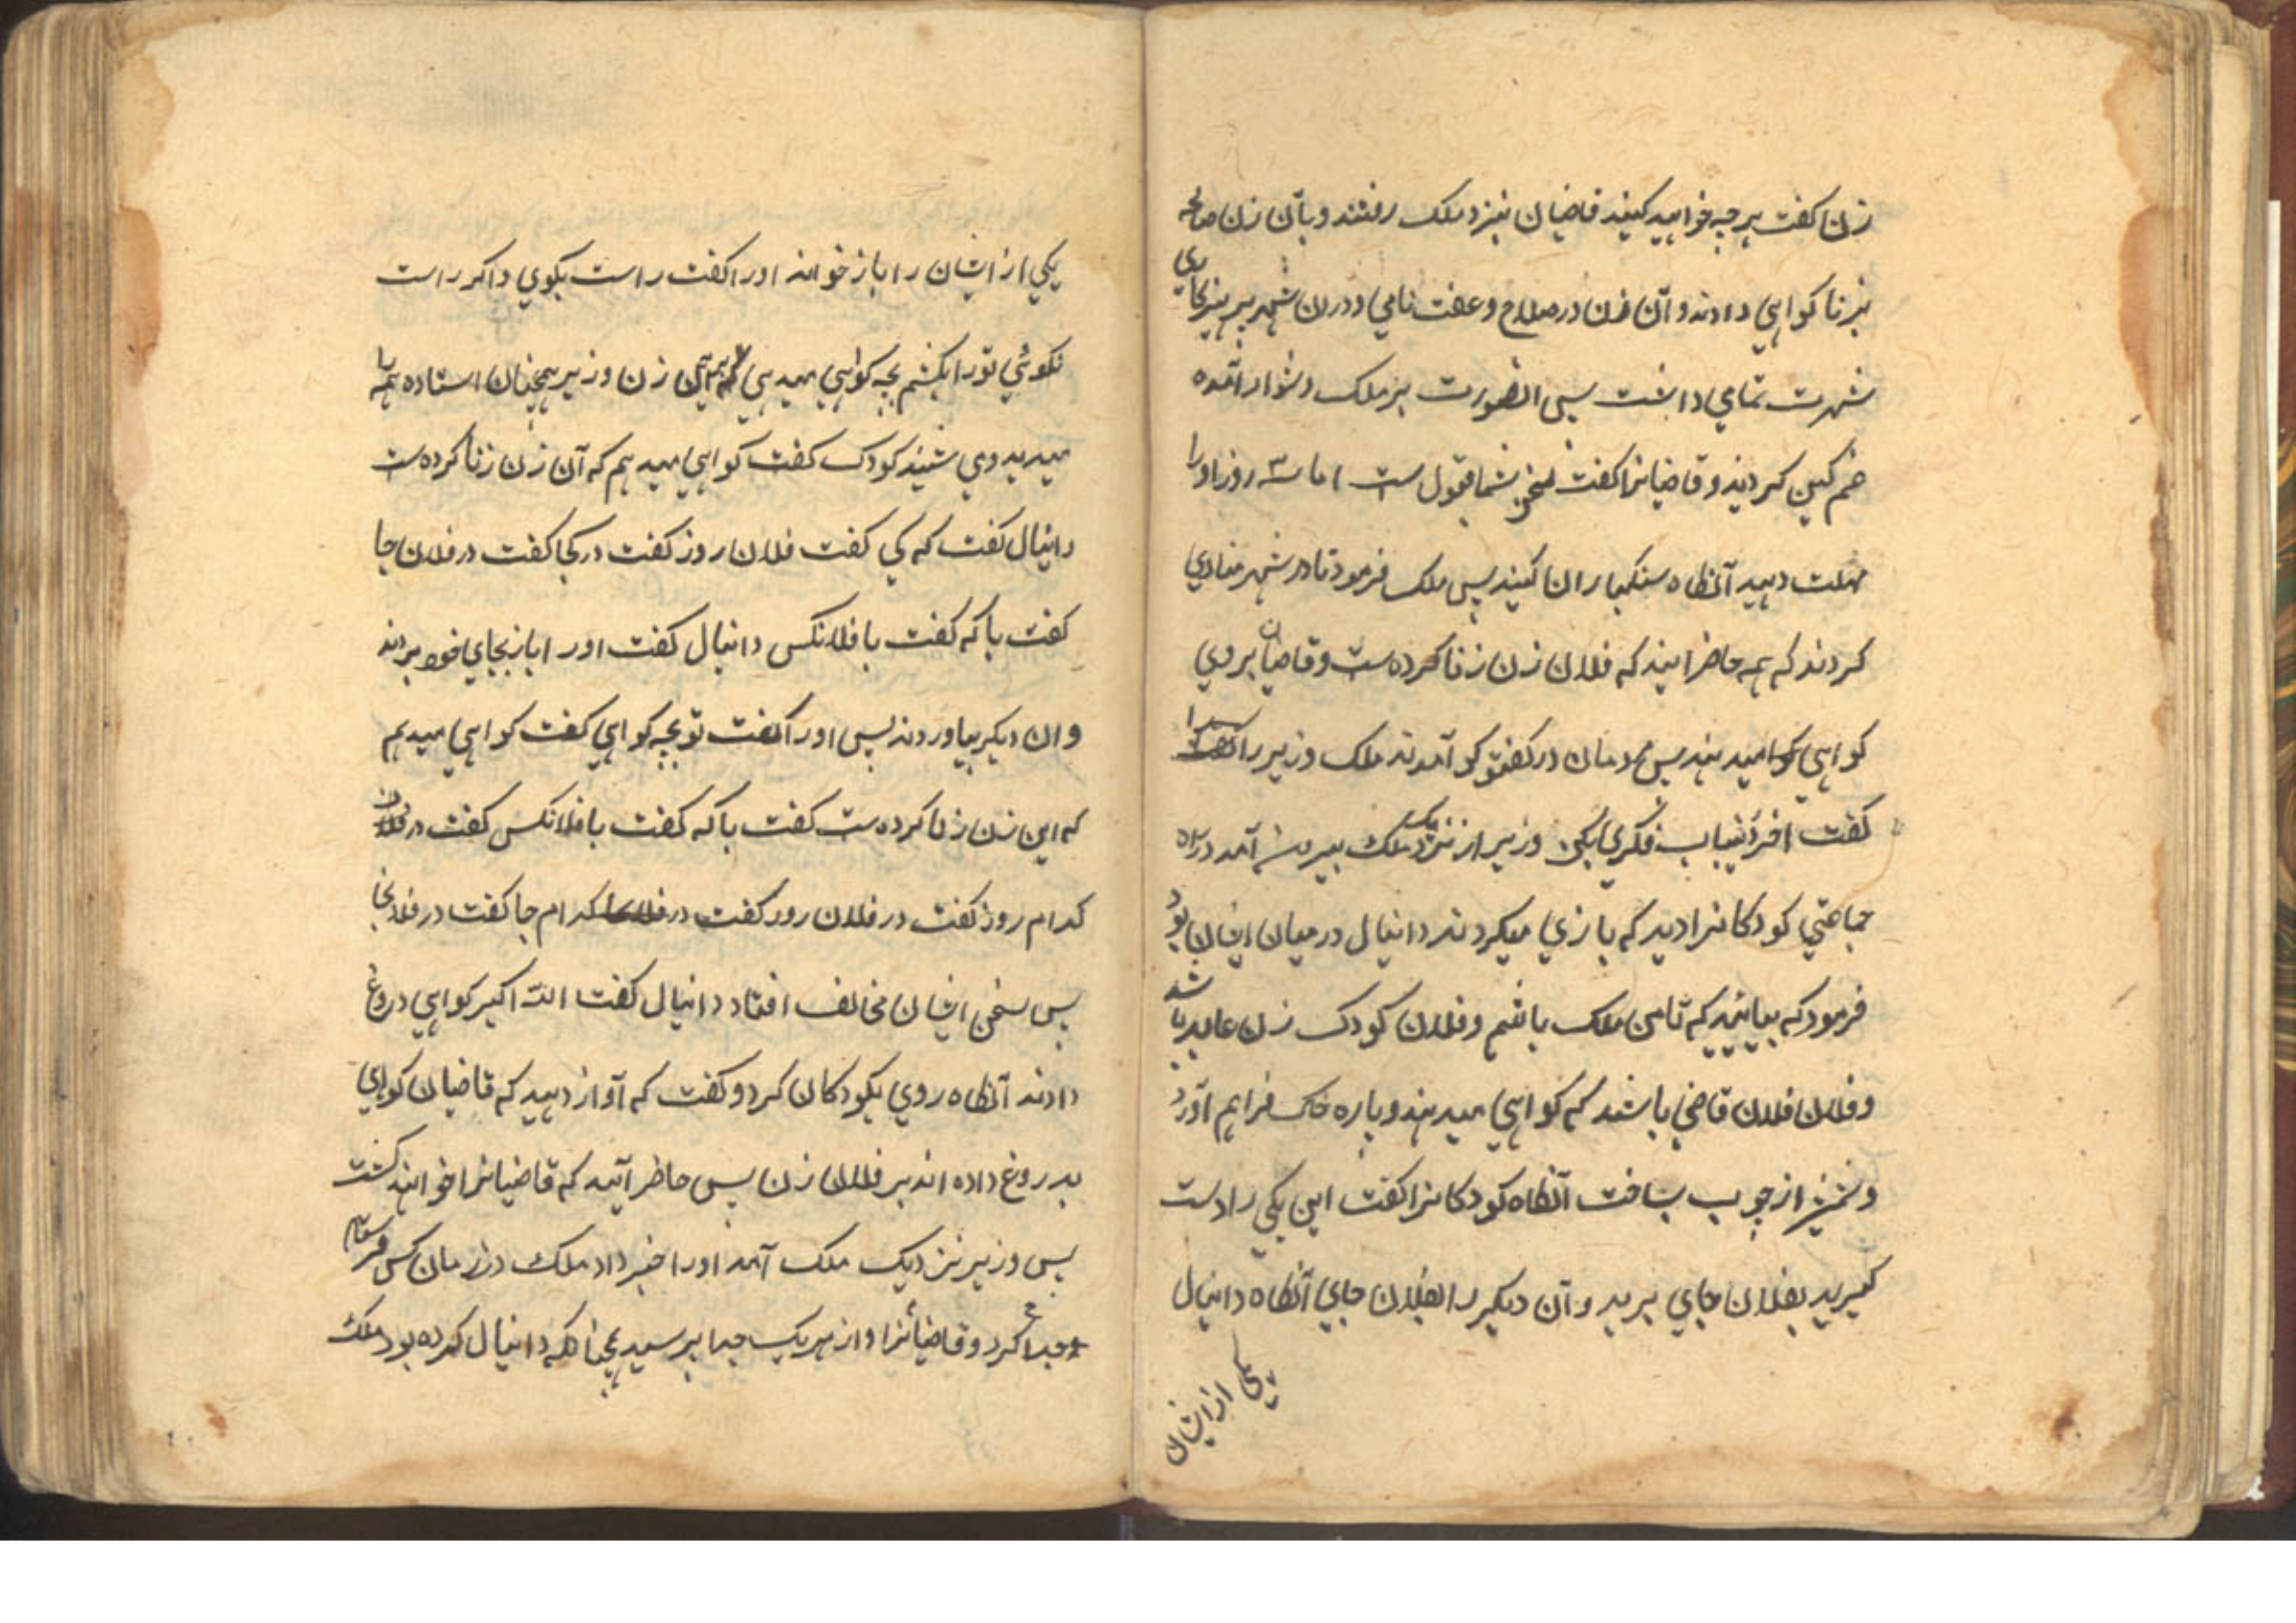 زن گفت هرچه خواهید کنید قاضیان بنزد ملک رفتند و بآن زن صالحه
بزنا کواهی دادند و آن زن در صلاح و عفت نامی و دران شهر بپرهیزکاری
شهرت تمامی داشت پس انصورت بر ملک دشوار آمده
غم کین کردید و قاضیانرا کفت سخن شما قبول ست اما سه روز او را
مهلت دهید آنکاه سنکبار انا کنید پس ملک فرمود تا در شهر منادی
کردند که همه حاضر ایند که فلان زن زنا کرده ست و قاضیان بروی
کواهی میدهند پس مردمان در کفتو کو آمدند ملک وزیر را
کفت اخر درین باب فکری بکن وزیر از نزدیک ملک بیرون آمد در راه
جماعتی کودکانرا دید که بازی میکردند دانیال در میان ایشان بود
فرمود که بیائید که تا من ملک باشم و فلان کودک زن عابد باشد
و فلان فلان قاضی باشند که کواهی میدهند و پاره خاک فراهم آورد
و شمشیر از چوب بساخت آنکاه کودکانرا کفت این یکی را دست
کیرید بفلان جای برید و آن دیکر را بفلان جای آنکاه دانیال
یکی از ایشان
یکی از ایشان را باز خواند اورا کفت راست بکوی و اکر راست
نکوئی تورا بکشم بچه کواهی میدهی این زن وزیر همچنان استاده همه را
میدید و می شنید کودک کفت کواهی میدهم که آن زن زنا کرده ست
دانیال کفت که کی کفت فلان روز کفت در کجا کفت در فلان جا
کفت با که کفت با فلانکس دانیال کفت اورا باز بجای خود بردند
وان دیکر بیاوردند پس اورا کفت تو بچه کواهی کفت کواهی میدهم
که این زن زنا کرده ست کفت با که کفت با فلانکس کفت در
کدام روز کفت در فلان روز کفت در کدام جا کفت در فلانجا
پس سخن ایشان مخالف افتاد دانیال کفت الله اکبر کواهی دروغ
دادند آنکاه روی بکودکان کرد و کفت که آواز دهید که قاضیان کواهی
بدروغ داده اند بر فلان زن پس حاضر آئید که قاضیانرا خواهند کشت
پس وزیر نزدیک ملک آمد اورا خبر داد ملک در زمان کس فرستاد
جدا کرد و قاضیانرا و از هریک جدا پرسید چنانکه دانیال کرده بود ملک